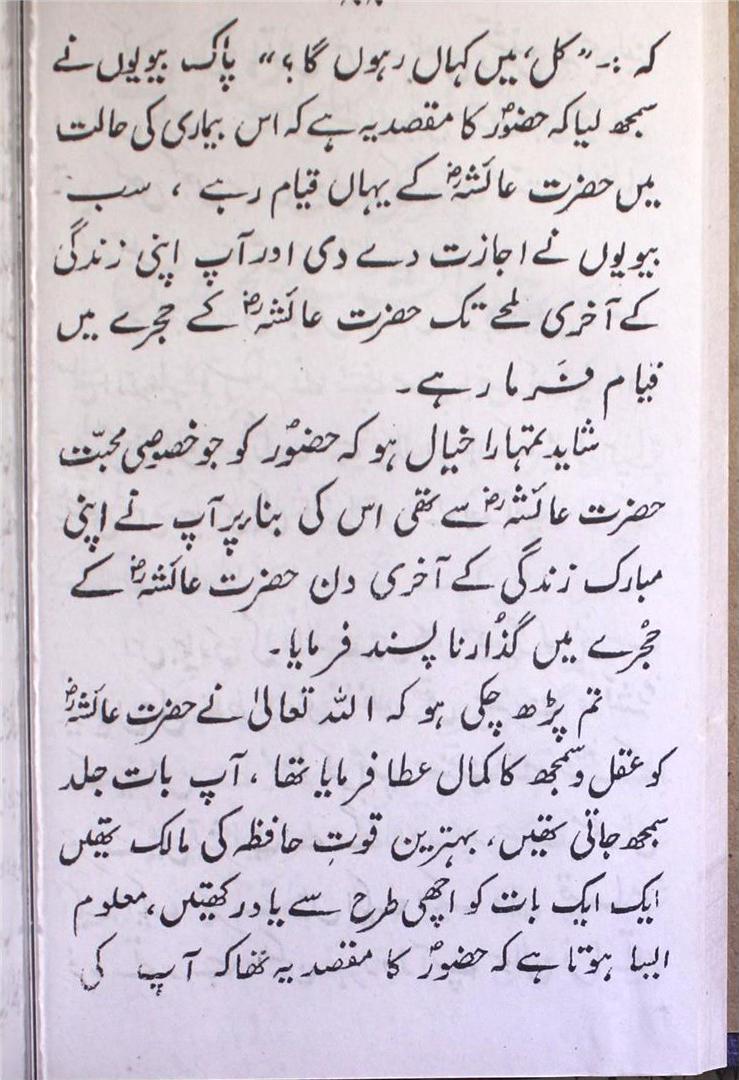 کہ :۔ ”کل، میں کہاں رہوں گا؟“ پاک بیویوں نے
سمجھ لیا کہ حضورؐ کا مقصد یہ ہے کہ اس بیماری کی حالت
میں حضرت عائشہؓ کے یہاں قیام رہے ، سب
بیویوں نے اجازت دے دی اور آپ اپنی زندگی
کے آخری لمحے تک حضرت عائشہؓ کے حجرے میں
قیام فرما رہے۔
شاید تمہارا خیال ہو کہ حضورؐ کو جو خصوصی محبّت
حضرت عائشہؓ سے تھی اس کی بنا پر آپ نے اپنی
مبارک زندگی کے آخری دن حضرت عائشہؓ کے
حُجرے میں گذارنا پسند فرمایا۔
تم پڑھ چکی ہو کہ اللہ تعالیٰ نے حضرت عائشہؓ
کو عقل و سمجھ کا کمال عطا فرمایا تھا ، آپ بات جلد
سمجھ جاتی تھیں، بہترین قوتِ حافظہ کی مالک تھیں
ایک ایک بات کو اچھی طرح سے یاد رکھتیں، معلوم
ایسا ہوتا ہے کہ حضورؐ کا مقصد یہ تھا کہ آپ کی